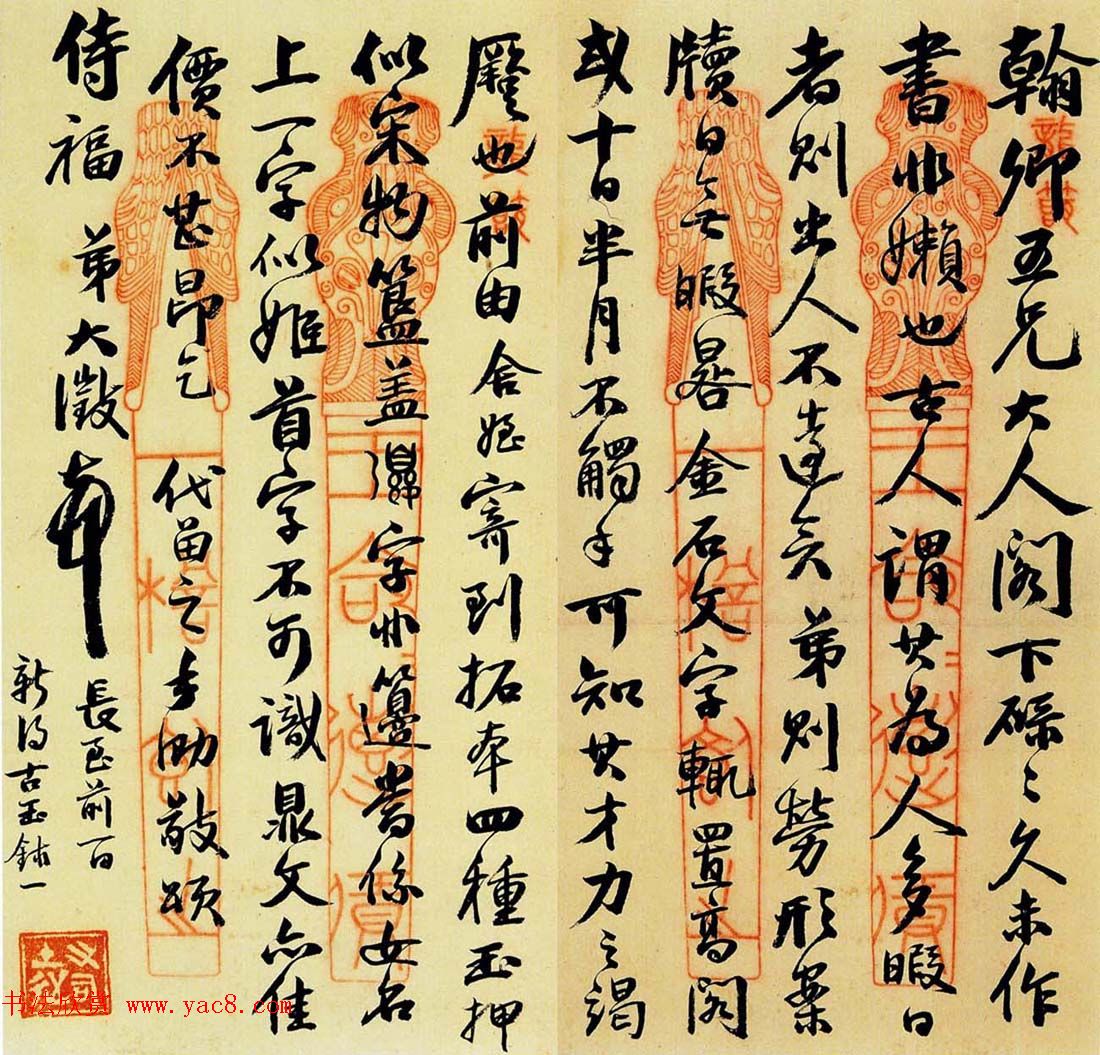 翰卿五兄大人閣下碌々久未作
書非嬾也古人謂其為人多暇日
者則出人不遠矣弟則勞形案
牘日無暇晷金石文字輒置高閣
或十日半月不觸手可知其才力之竭
蹷也前由舍姪寄到拓本四種玉押
似宋物簋盖字非籩嘗係女名
上一字似姬首字不可識鼎文亦佳
價不甚昂乞代留之手泐敬頌
侍福弟大澂頓
長至前一日
新得古玉鉥一
书法欣赏 www.yac8.com